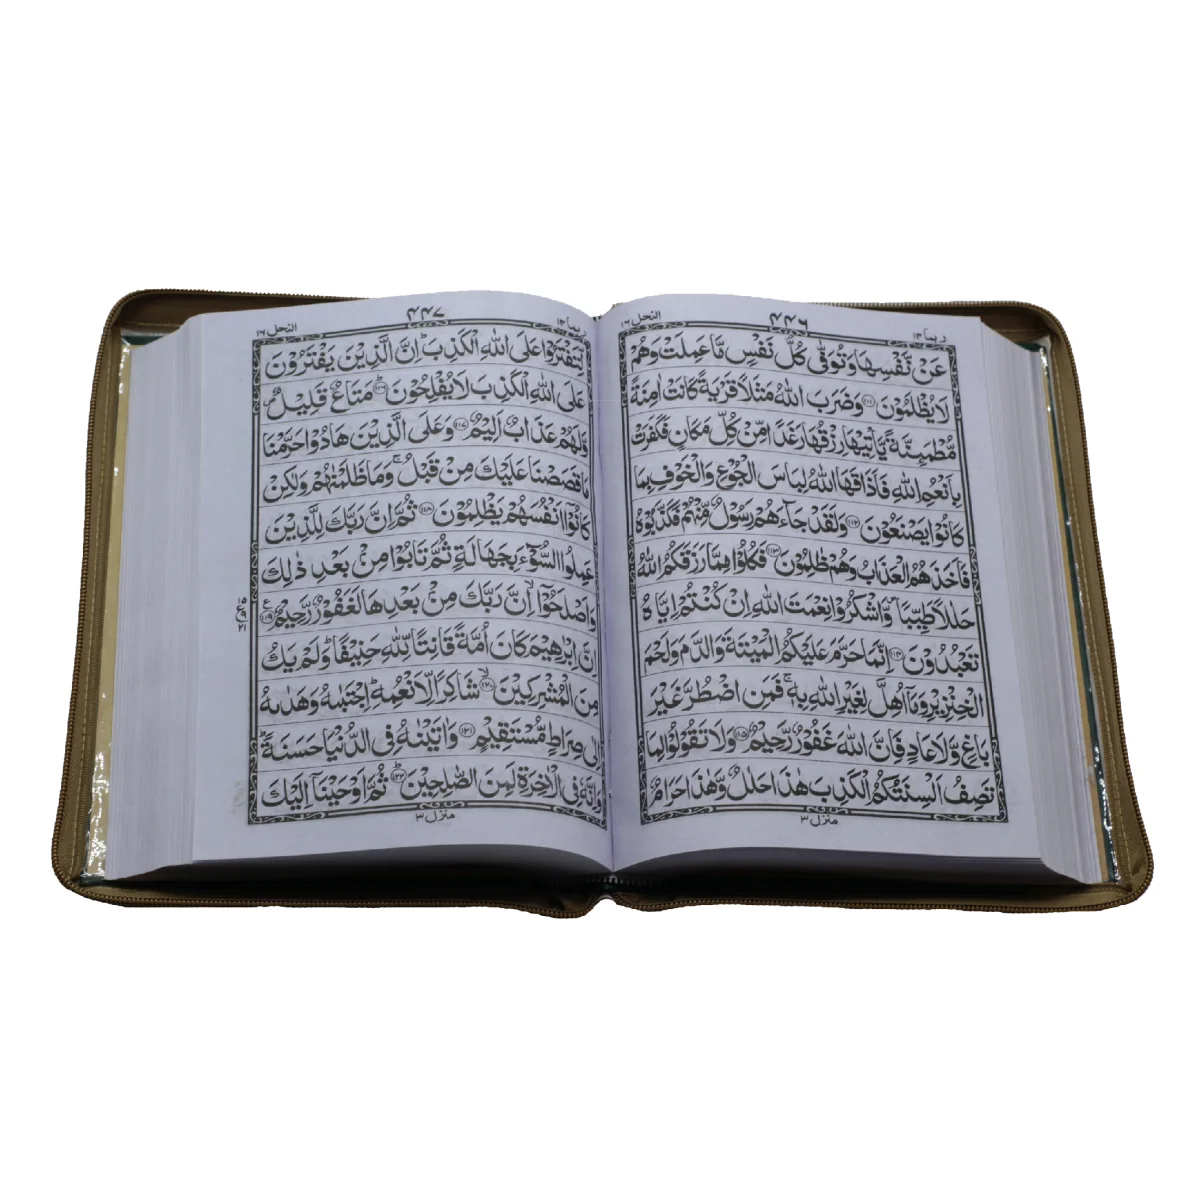 ربما ١٤
٤٤٦
النحل ١٦
عَنْ نَّفْسِهَا وَتُوَفّٰى كُلُّ نَفْسٍ مَّا عَمِلَتْ وَهُمْ
لَا يُظْلَمُوْنَ ﴿١١١﴾ وَضَرَبَ اللّٰهُ مَثَلًا قَرْيَةً كَانَتْ اٰمِنَةً
مُّطْمَىِٕنَّةً يَّاْتِيْهَا رِزْقُهَا رَغَدًا مِّنْ كُلِّ مَكَانٍ فَكَفَرَتْ
بِاَنْعُمِ اللّٰهِ فَاَذَاقَهَا اللّٰهُ لِبَاسَ الْجُوْعِ وَالْخَوْفِ بِمَا
كَانُوْا يَصْنَعُوْنَ ﴿١١٢﴾ وَلَقَدْ جَآءَهُمْ رَسُوْلٌ مِّنْهُمْ فَكَذَّبُوْهُ
فَاَخَذَهُمُ الْعَذَابُ وَهُمْ ظٰلِمُوْنَ ﴿١١٣﴾ فَكُلُوْا مِمَّا رَزَقَكُمُ اللّٰهُ
حَلٰلًا طَيِّبًا ۪ وَّاشْكُرُوْا نِعْمَتَ اللّٰهِ اِنْ كُنْتُمْ اِيَّاهُ
تَعْبُدُوْنَ ﴿١١٤﴾ اِنَّمَا حَرَّمَ عَلَيْكُمُ الْمَيْتَةَ وَالدَّمَ وَلَحْمَ
الْخِنْزِيْرِ وَمَآ اُهِلَّ لِغَيْرِ اللّٰهِ بِهٖ ۚ فَمَنِ اضْطُرَّ غَيْرَ
بَاغٍ وَّلَا عَادٍ فَاِنَّ اللّٰهَ غَفُوْرٌ رَّحِيْمٌ ﴿١١٥﴾ وَلَا تَقُوْلُوْا لِمَا
تَصِفُ اَلْسِنَتُكُمُ الْكَذِبَ هٰذَا حَلٰلٌ وَّهٰذَا حَرَامٌ
منزل ٣
ربما ١٤
٤٤٧
النحل ١٦
لِّتَفْتَرُوْا عَلَى اللّٰهِ الْكَذِبَ ؕ اِنَّ الَّذِيْنَ يَفْتَرُوْنَ
عَلَى اللّٰهِ الْكَذِبَ لَا يُفْلِحُوْنَ ﴿١١٦﴾ؕ مَتَاعٌ قَلِيْلٌ
وَّلَهُمْ عَذَابٌ اَلِيْمٌ ﴿١١٧﴾ وَعَلَى الَّذِيْنَ هَادُوْا حَرَّمْنَا
مَا قَصَصْنَا عَلَيْكَ مِنْ قَبْلُ ۚ وَمَا ظَلَمْنٰهُمْ وَلٰكِنْ
كَانُوْۤا اَنْفُسَهُمْ يَظْلِمُوْنَ ﴿١١٨﴾ ثُمَّ اِنَّ رَبَّكَ لِلَّذِيْنَ
عَمِلُوا السُّوْٓءَ بِجَهَالَةٍ ثُمَّ تَابُوْا مِنْۢ بَعْدِ ذٰلِكَ
وَاَصْلَحُوْۤا ۙ اِنَّ رَبَّكَ مِنْۢ بَعْدِهَا لَغَفُوْرٌ رَّحِيْمٌ ﴿١١٩﴾ع
اِنَّ اِبْرٰهِيْمَ كَانَ اُمَّةً قَانِتًا لِّلّٰهِ حَنِيْفًا ؕ وَلَمْ يَكُ
مِنَ الْمُشْرِكِيْنَ ﴿١٢٠﴾ۙ شَاكِرًا لِّاَنْعُمِهٖ ؕ اِجْتَبٰىهُ وَهَدٰىهُ
اِلٰى صِرَاطٍ مُّسْتَقِيْمٍ ﴿١٢١﴾ وَاٰتَيْنٰهُ فِى الدُّنْيَا حَسَنَةً ؕ
وَاِنَّهٗ فِى الْاٰخِرَةِ لَمِنَ الصّٰلِحِيْنَ ﴿١٢٢﴾ؕ ثُمَّ اَوْحَيْنَاۤ اِلَيْكَ
منزل ٣